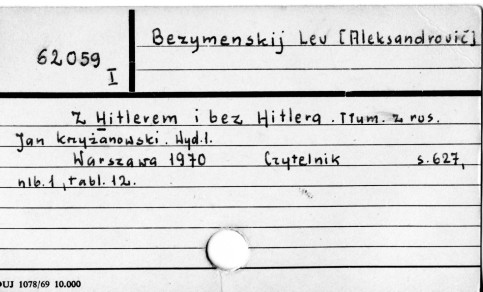 62059
I
Bezymenskij Lev [Aleksandrovič]
Z Hitlerem i bez Hitlera. Tłum. z ros.
Jan Krzyżanowski. Wyd.1.
Warszawa 1970 Czytelnik s.627,
nlb.1, tabl.12.
DUJ 1078/69 10.000